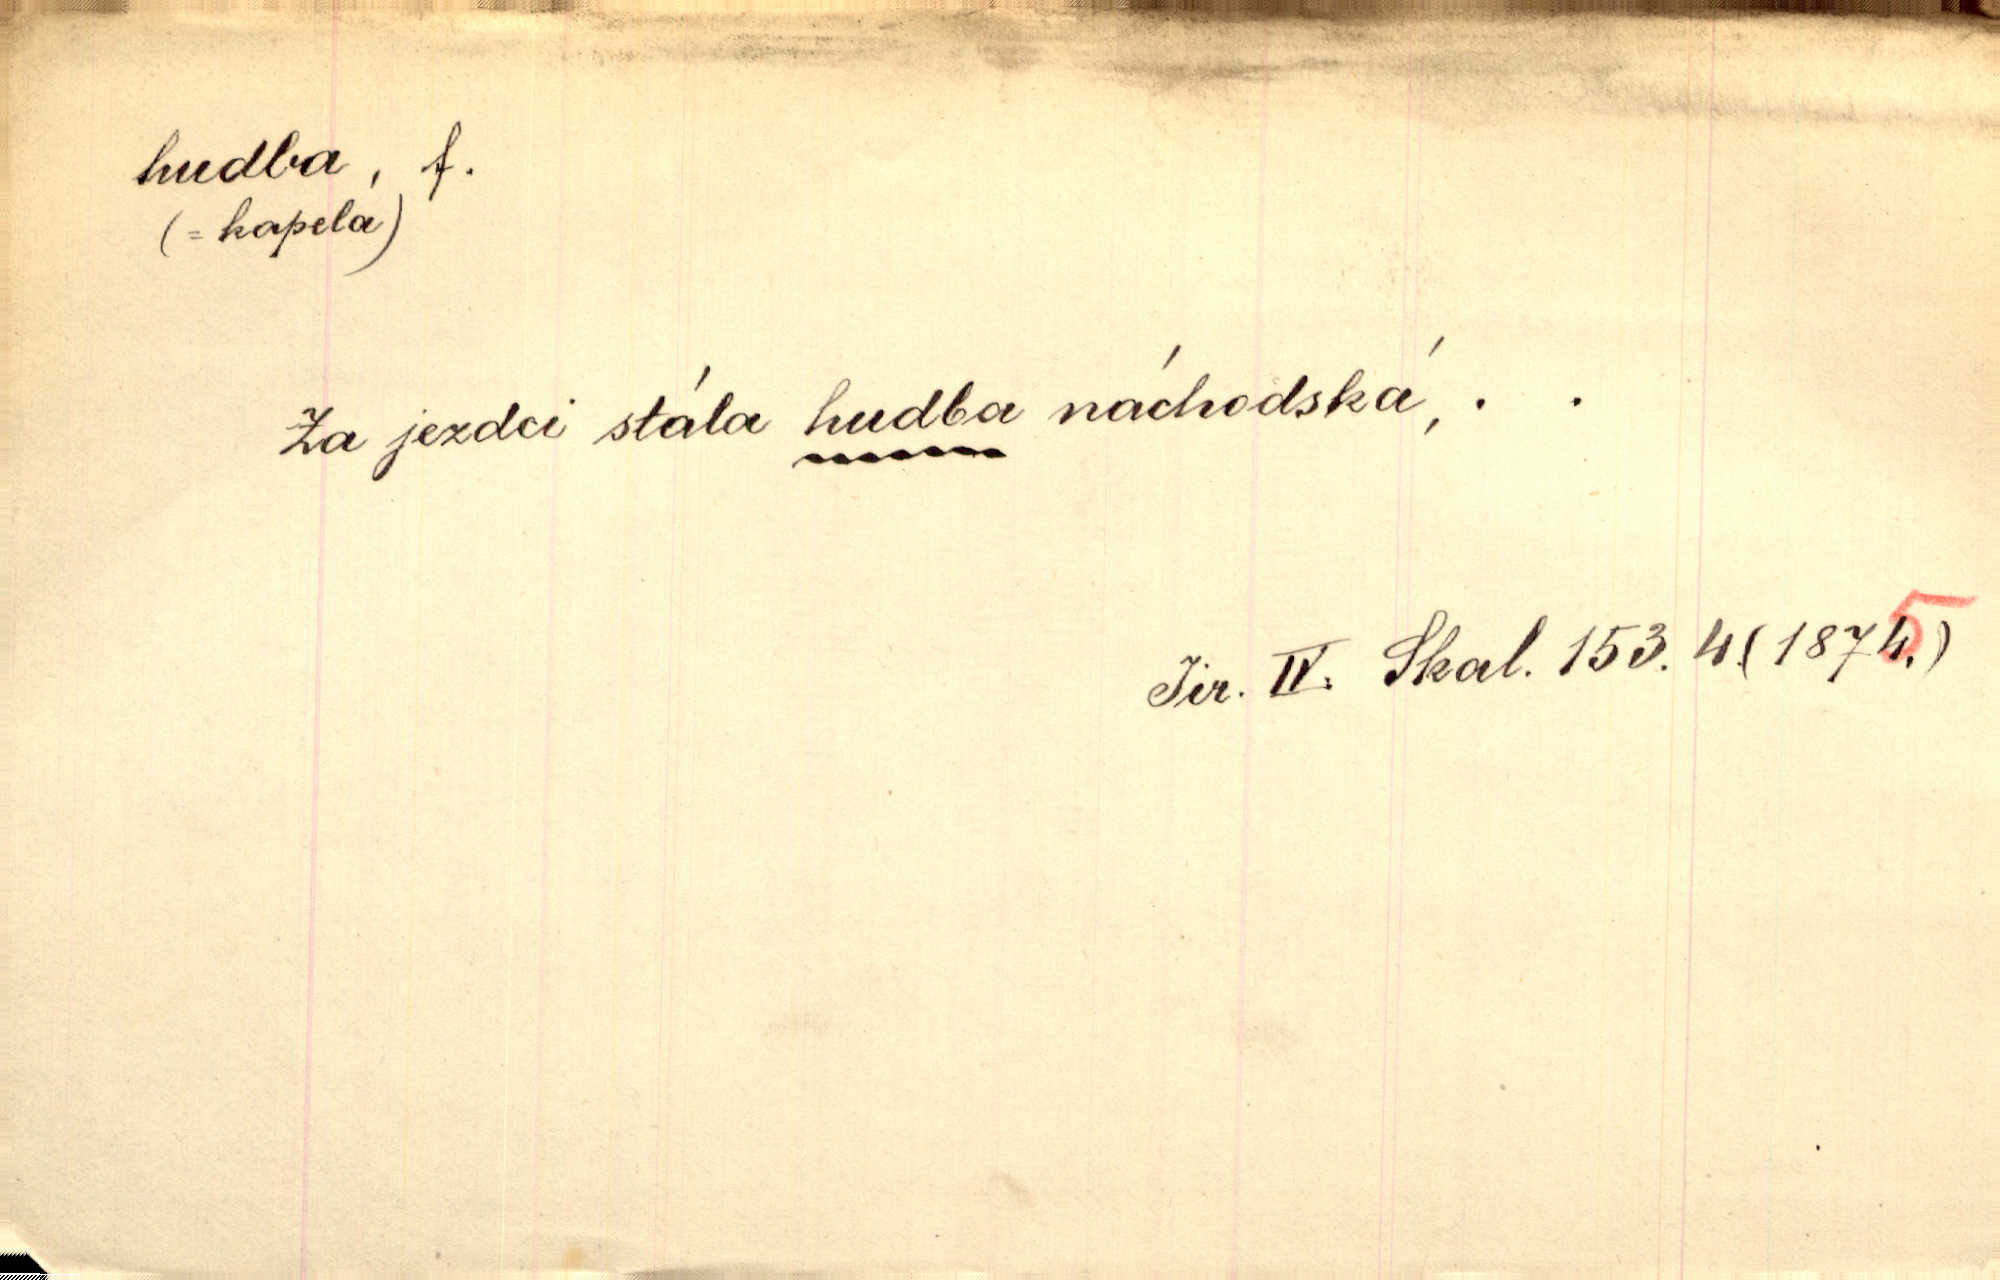 hudba, f.
(= kapela)
Za jezdci stála hudba náchodská, . .
Jir. IV. Skal. 153. 4. (1875)